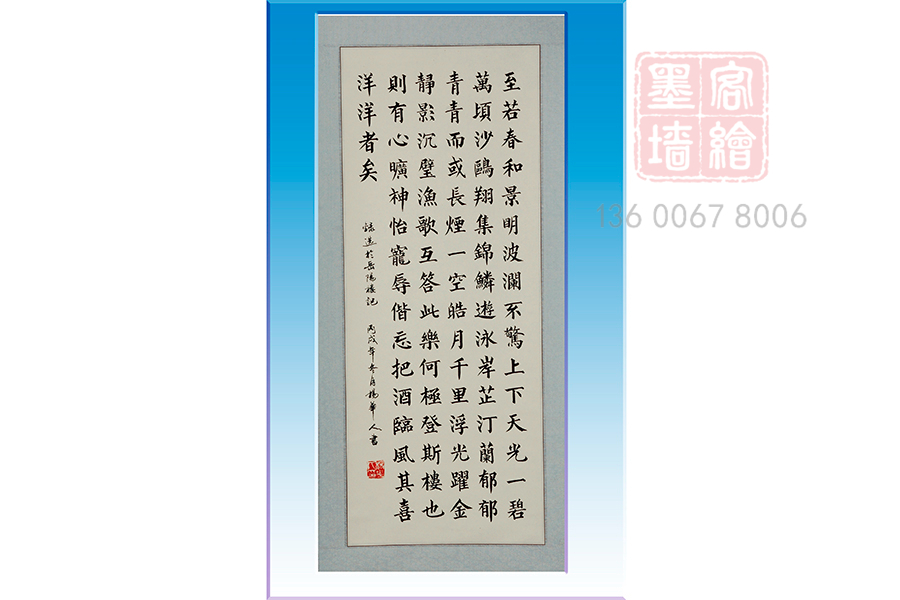 至若春和景明波瀾不驚上下天光一碧
萬頃沙鷗翔集錦鱗遊泳岸芷汀蘭郁郁
青青而或長煙一空皓月千里浮光躍金
靜影沉璧漁歌互答此樂何極登斯樓也
則有心曠神怡寵辱偕忘把酒臨風其喜
洋洋者矣
於岳陽樓记 丙戌年冬月楊華人書
墨客
墙繪
136 0067 8006